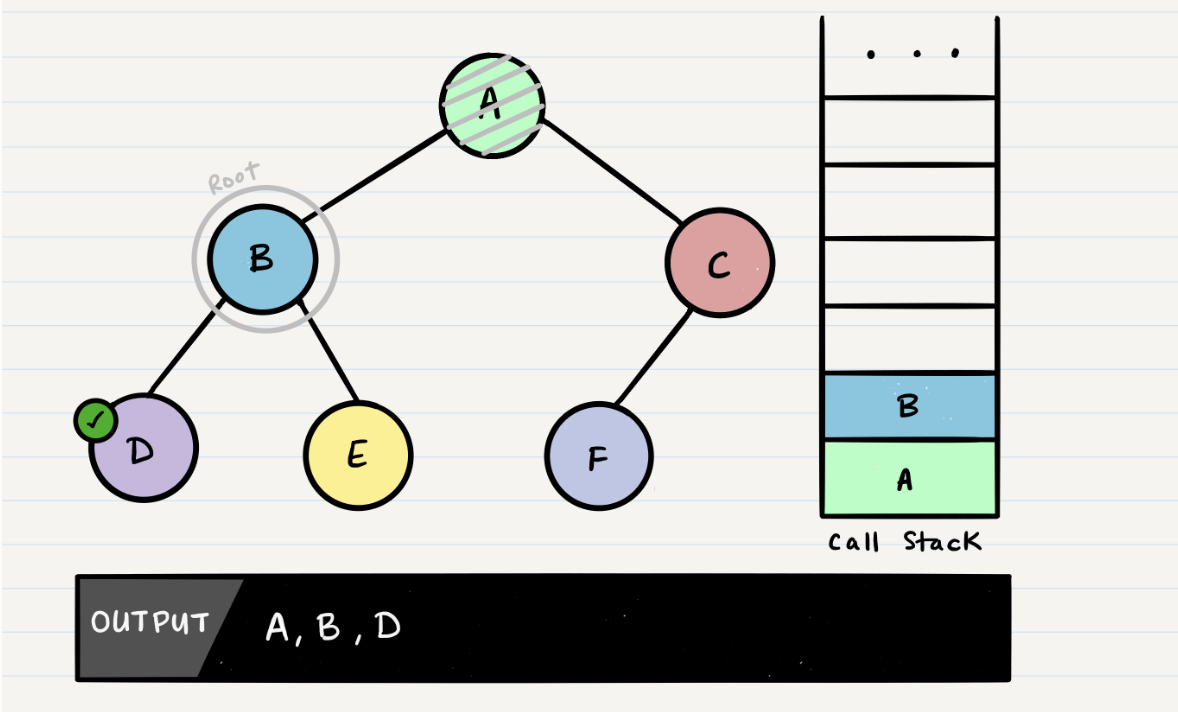 A
Root
B
C
D
E
F
...
B
A
Call Stack
OUTPUT
A, B, D